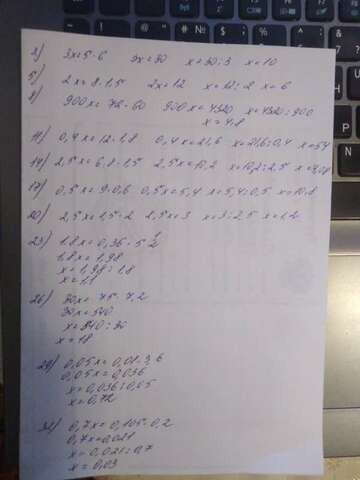 2) 3x=5·6 3x=30 x=30:3 x=10
5) 2x=8·1,5 2x=12 x=12:2 x=6
8) 900x=72·60 900x=4320 x=4320:900
x=4,8
11) 0,4x=12·1,8 0,4x=21,6 x=21,6:0,4 x=54
14) 2,5x=6,8·1,5 2,5x=10,2 x=10,2:2,5 x=4,08
17) 0,5x=9·0,6 0,5x=5,4 x=5,4:0,5 x=10,8
20) 2,5x=1,5·2 2,5x=3 x=3:2,5 x=1,2
23) 1,8x=0,36·5
1,8x=1,98
x=1,98:1,8
x=1,1
26) 30x=75·7,2
30x=540
x=540:30
x=18
29) 0,05x=0,01·3,6
0,05x=0,036
x=0,036:0,05
x=0,72
32) 0,7x=0,105·0,2
0,7x=0,021
x=0,021:0,7
x=0,03